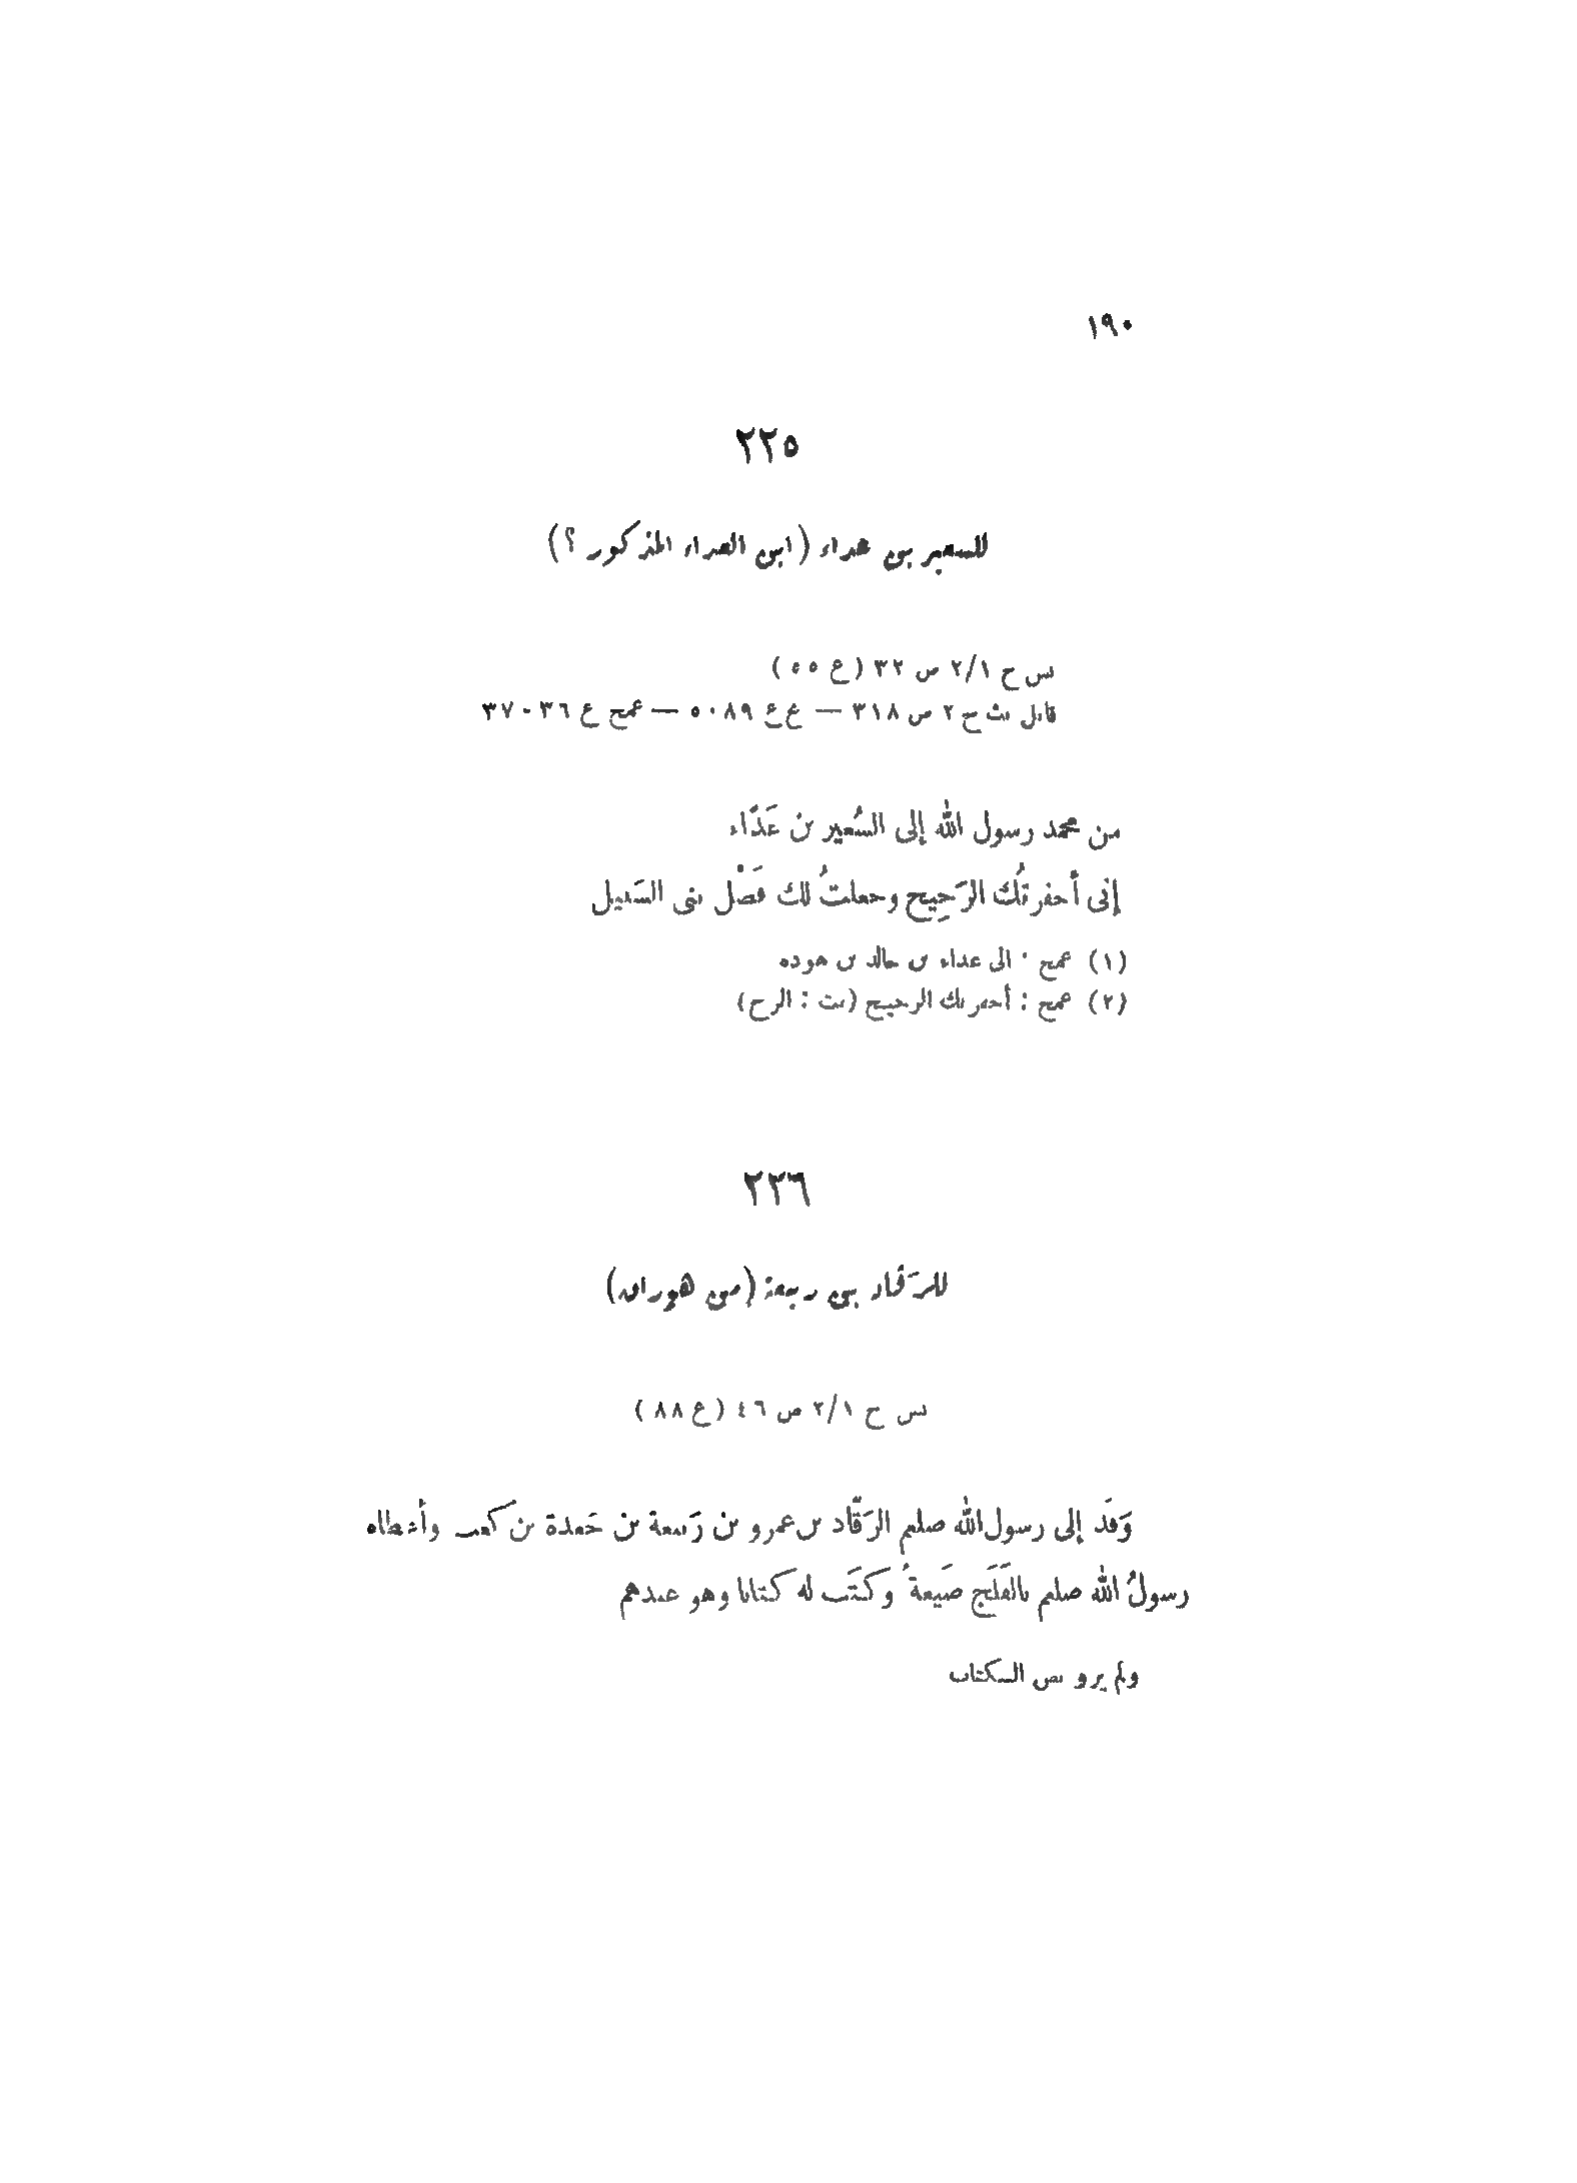 ١٩٠
٢٢٥
للسعير بن عداء (ابن العداء المذكور ؟)
بس ج ٢/١ ص ٣٢ (ع ٥٥)
قابل بث ج ٢ ص ٣١٨ — عع ٥٠٨٩ — عمخ ع ٣٦-٣٧
من محمد رسول الله إلى السُعير بن عَدّاء
إنى أحفرتُك الرَجِيح وجعلتُ لك فَضْل بنى السَبيل
(١) عمخ : الى عداء بن خالد بن هوده
(٢) عمخ : أحفرتك الرجيح (بث : الرح)
٢٢٦
للرَقاد بن ربيعة (من هوازن)
بس ج ٢/١ ص ٤٦ (ع ٨٨)
وَفَد إلى رسول الله صلعم الرَقّاد بن عمرو بن رَبيعة بن جَعدة بن كعب وأعطاه
رسولُ الله صلعم بالفَلَج ضَيعةً وكتَب له كتابا وهو عندهم
ولم يرو نص الكتاب